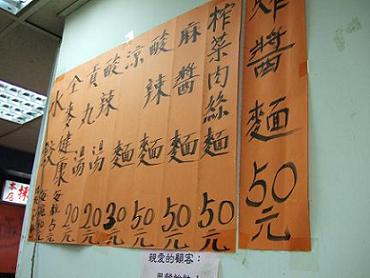 炸醬麵50元
榨菜肉絲麵50元
麻醬麵50元
酸辣麵50元
涼麵30元
酸辣湯20元
貢九湯20元
全麥健康
水餃
親愛的顧客：